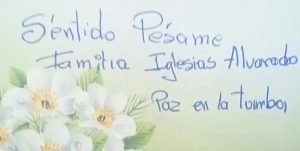 Séntido Pésame
Familia Iglesias Alvarado
Paz en la tumba,